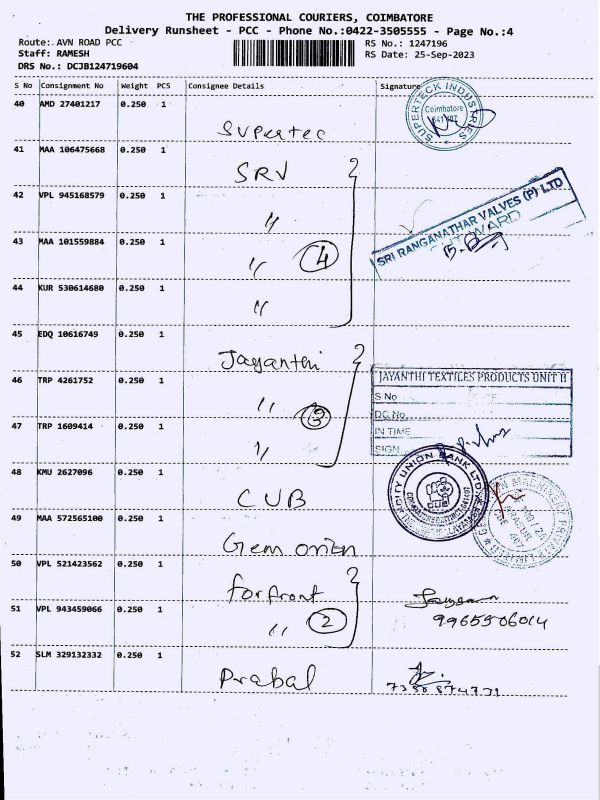 THE PROFESSIONAL COURIERS, COIMBATORE
Delivery Runsheet - PCC - Phone No.:0422-3505555 - Page No.:4
Route: AVN ROAD PCC RS No.: 1247196
Staff: RAMESH RS Date: 25-Sep-2023
DRS No.: DCJB124719604
S No Consignment No Weight PCS Consignee Details Signature
40 AMD 27401217 0.250 1 Supertec
SUPERTECK INDUSTRIES Coimbatore
41 MAA 106475668 0.250 1 SRV
42 VPL 945168579 0.250 1 "
SRI RANGANATHAR VALVES (P) LTD
43 MAA 101559884 0.250 1 " 4
44 KUR 530614680 0.250 1 "
45 EDQ 10616749 0.250 1 Jayanthi
46 TRP 4261752 0.250 1 " 3
JAYANTHI TEXTILES PRODUCTS UNIT II
S No
DC.No.
IN TIME
SIGN
47 TRP 1609414 0.250 1 "
48 KMU 2627096 0.250 1 CUB
CITY UNION BANK LTD
CUB
49 MAA 572565100 0.250 1 Gem orien
50 VPL 521423562 0.250 1 forfront
51 VPL 943459066 0.250 1 " 2
9965506014
52 SLM 329132332 0.250 1 Prabal